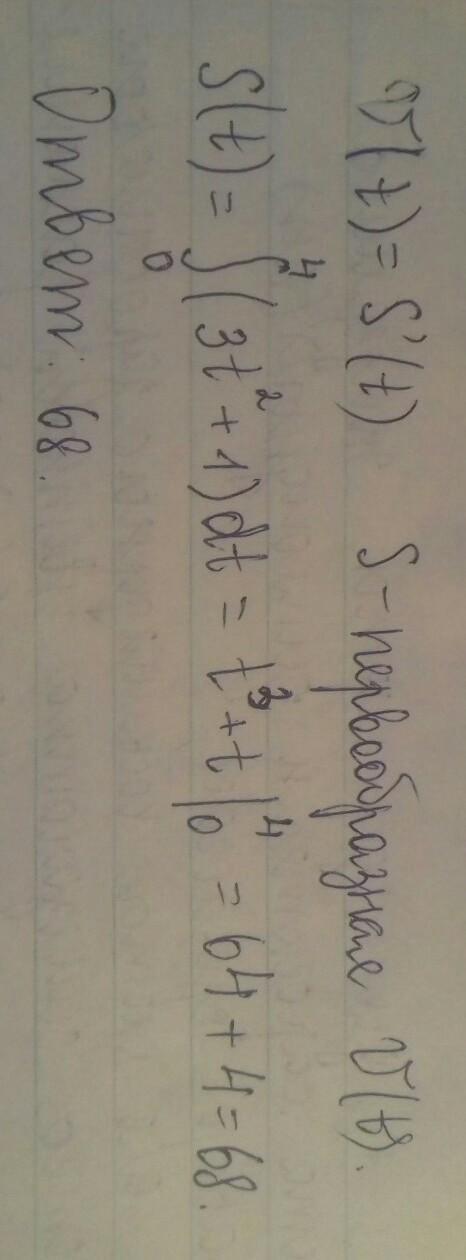 v(t) = S'(t) S - первообразная v(t).
S(t) = ∫₀⁴ (3t² + 1)dt = t³ + t |₀⁴ = 64 + 4 = 68.
Ответ: 68.